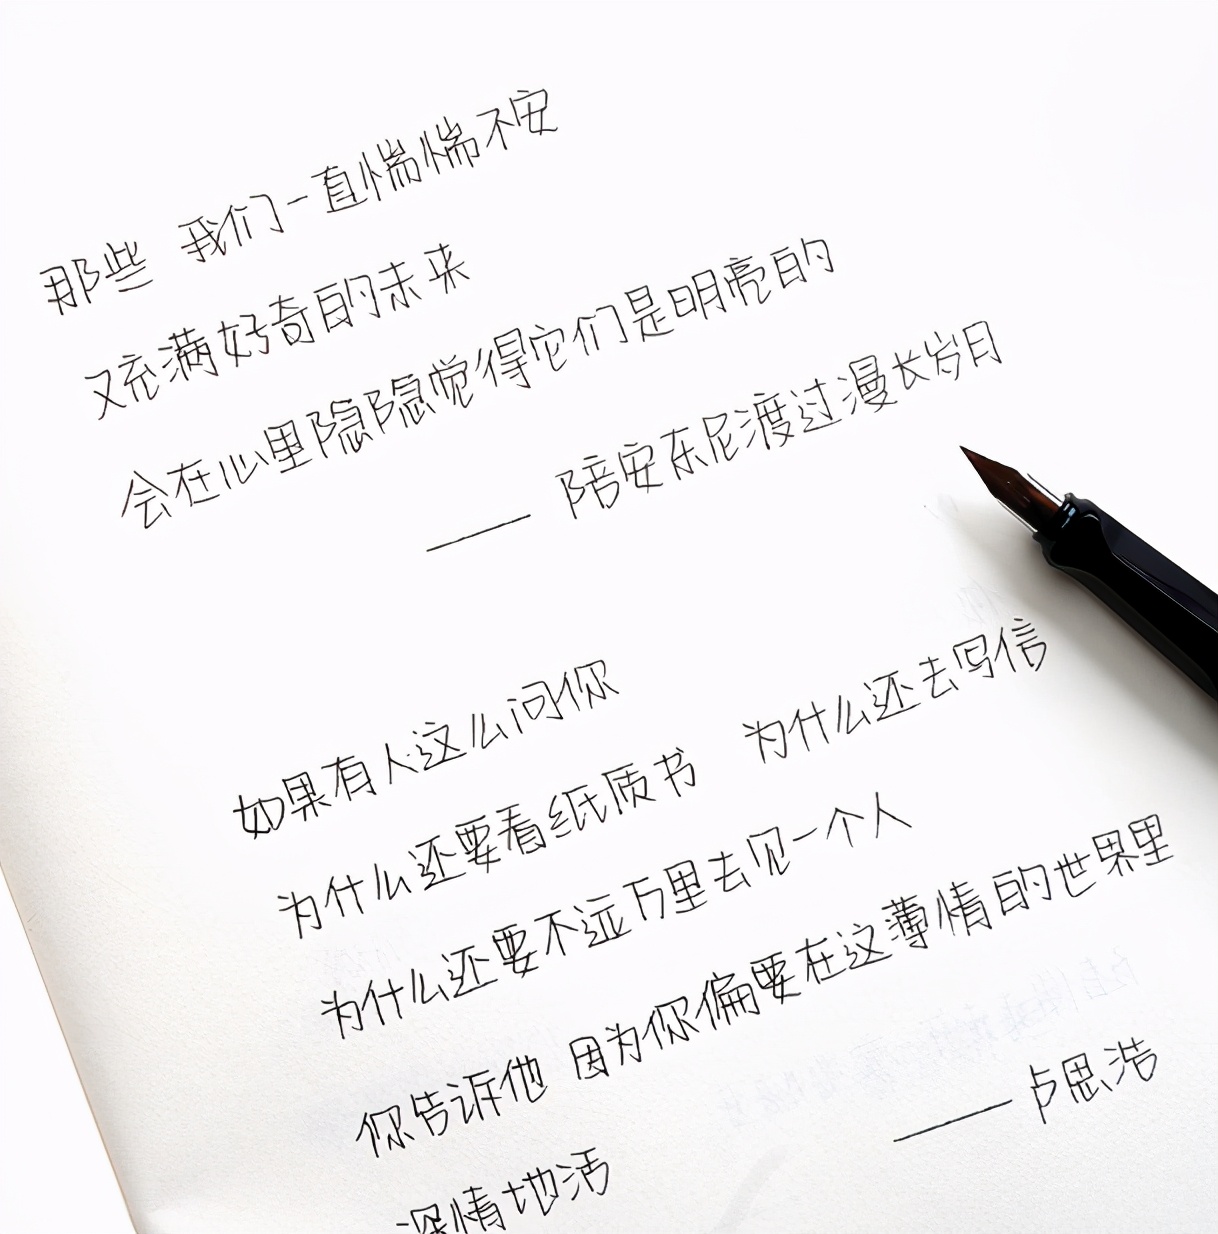 那些 我们一直惴惴不安
又充满好奇的未来
会在心里隐隐觉得它们是明亮的
—— 陪安东尼渡过漫长岁月
如果有人这么问你
为什么还要看纸质书 为什么还去写信
为什么还要不远万里去见一个人
你告诉他 因为你偏要在这薄情的世界里
深情地活
—— 卢思浩